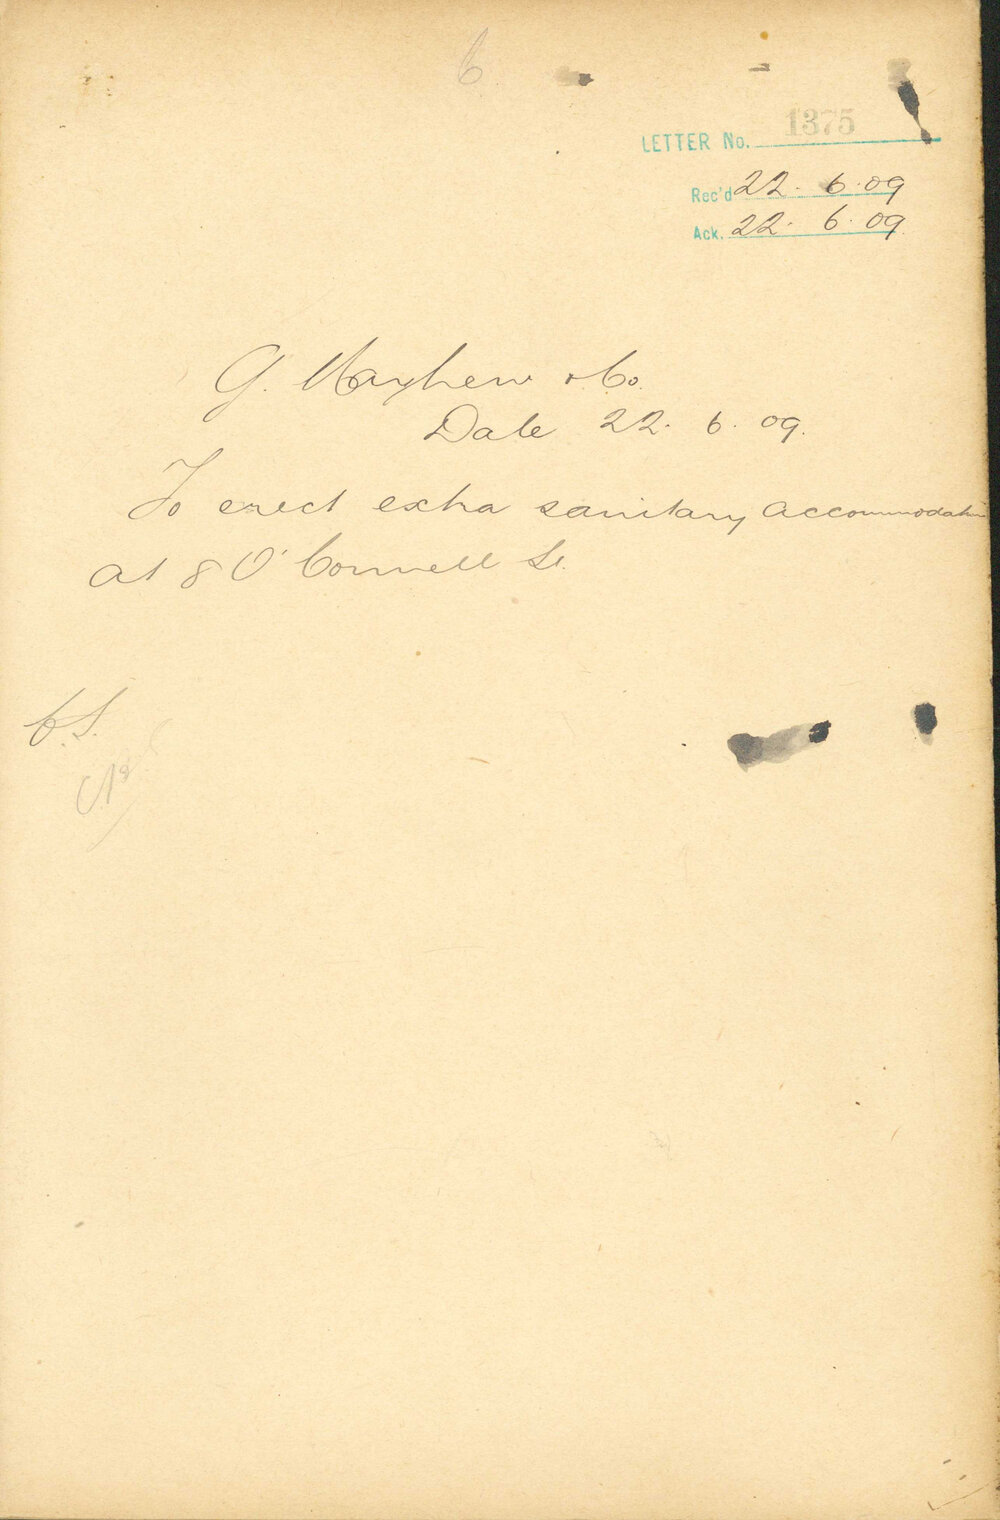 6
LETTER No. 1375
Rec'd 22. 6. 09
Ack. 22. 6. 09
G. Mayhew & Co.
Date 22. 6. 09.
To erect extra sanitary accommodation
at 8 O'Connell St.
C.S.